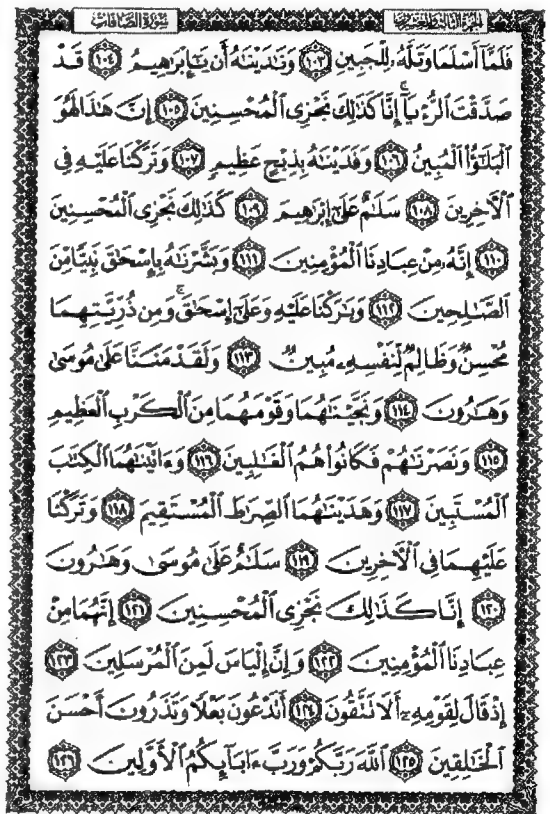 سُورَةُ الصَّافَّاتِ الجزء الثالث والعشرون
فَلَمَّآ أَسْلَمَا وَتَلَّهُۥ لِلْجَبِينِ ١٠٣ وَنَٰدَيْنَٰهُ أَن يَٰٓإِبْرَٰهِيمُ ١٠٤ قَدْ
صَدَّقْتَ ٱلرُّءْيَآ ۚ إِنَّا كَذَٰلِكَ نَجْزِى ٱلْمُحْسِنِينَ ١٠٥ إِنَّ هَٰذَا لَهُوَ
ٱلْبَلَٰٓؤُا۟ ٱلْمُبِينُ ١٠٦ وَفَدَيْنَٰهُ بِذِبْحٍ عَظِيمٍ ١٠٧ وَتَرَكْنَا عَلَيْهِ فِى
ٱلْءَاخِرِينَ ١٠٨ سَلَٰمٌ عَلَىٰٓ إِبْرَٰهِيمَ ١٠٩ كَذَٰلِكَ نَجْزِى ٱلْمُحْسِنِينَ
١١٠ إِنَّهُۥ مِنْ عِبَادِنَا ٱلْمُؤْمِنِينَ ١١١ وَبَشَّرْنَٰهُ بِإِسْحَٰقَ نَبِيًّا مِّنَ
ٱلصَّٰلِحِينَ ١١٢ وَبَٰرَكْنَا عَلَيْهِ وَعَلَىٰٓ إِسْحَٰقَ ۚ وَمِن ذُرِّيَّتِهِمَا
مُحْسِنٌ وَظَالِمٌ لِّنَفْسِهِۦ مُبِينٌ ١١٣ وَلَقَدْ مَنَنَّا عَلَىٰ مُوسَىٰ
وَهَٰرُونَ ١١٤ وَنَجَّيْنَٰهُمَا وَقَوْمَهُمَا مِنَ ٱلْكَرْبِ ٱلْعَظِيمِ
١١٥ وَنَصَرْنَٰهُمْ فَكَانُوا۟ هُمُ ٱلْغَٰلِبِينَ ١١٦ وَءَاتَيْنَٰهُمَا ٱلْكِتَٰبَ
ٱلْمُسْتَبِينَ ١١٧ وَهَدَيْنَٰهُمَا ٱلصِّرَٰطَ ٱلْمُسْتَقِيمَ ١١٨ وَتَرَكْنَا
عَلَيْهِمَا فِى ٱلْءَاخِرِينَ ١١٩ سَلَٰمٌ عَلَىٰ مُوسَىٰ وَهَٰرُونَ
١٢٠ إِنَّا كَذَٰلِكَ نَجْزِى ٱلْمُحْسِنِينَ ١٢١ إِنَّهُمَا مِنْ
عِبَادِنَا ٱلْمُؤْمِنِينَ ١٢٢ وَإِنَّ إِلْيَاسَ لَمِنَ ٱلْمُرْسَلِينَ ١٢٣
إِذْ قَالَ لِقَوْمِهِۦٓ أَلَا تَتَّقُونَ ١٢٤ أَتَدْعُونَ بَعْلًا وَتَذَرُونَ أَحْسَنَ
ٱلْخَٰلِقِينَ ١٢٥ ٱللَّهَ رَبَّكُمْ وَرَبَّ ءَابَآئِكُمُ ٱلْأَوَّلِينَ ١٢٦